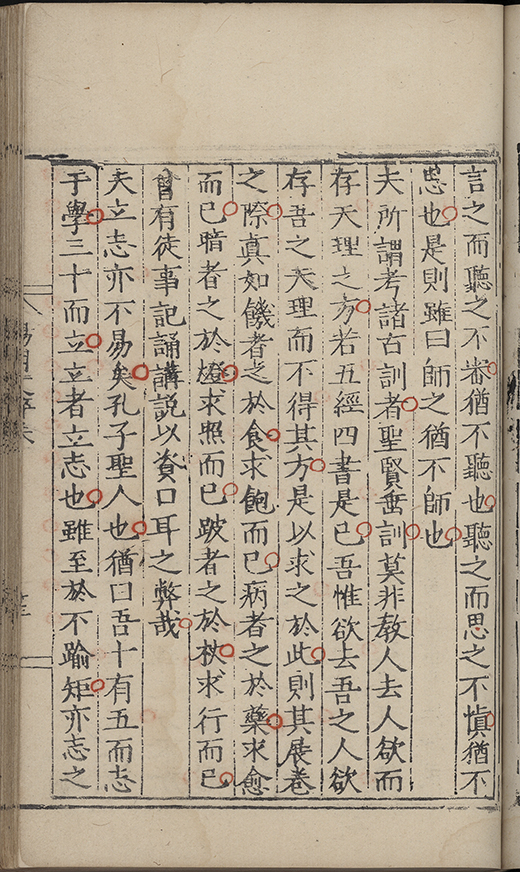 言之而聽之不審猶不聽也聽之而思之不慎猶不
思也是則雖曰師之猶不師也
夫所謂考諸古訓者聖賢垂訓莫非教人去人欲而
存天理之方若五經四書是已吾惟欲去吾之人欲
存吾之天理而不得其方是以求之於此則其展卷
之際真如饑者之於食求飽而已病者之於藥求愈
而已暗者之於燈求照而已跛者之於杖求行而已
曾有徒事記誦講說以資口耳之弊哉
夫立志亦不易矣孔子聖人也猶曰吾十有五而志
于學三十而立立者立志也雖至於不踰矩亦志之